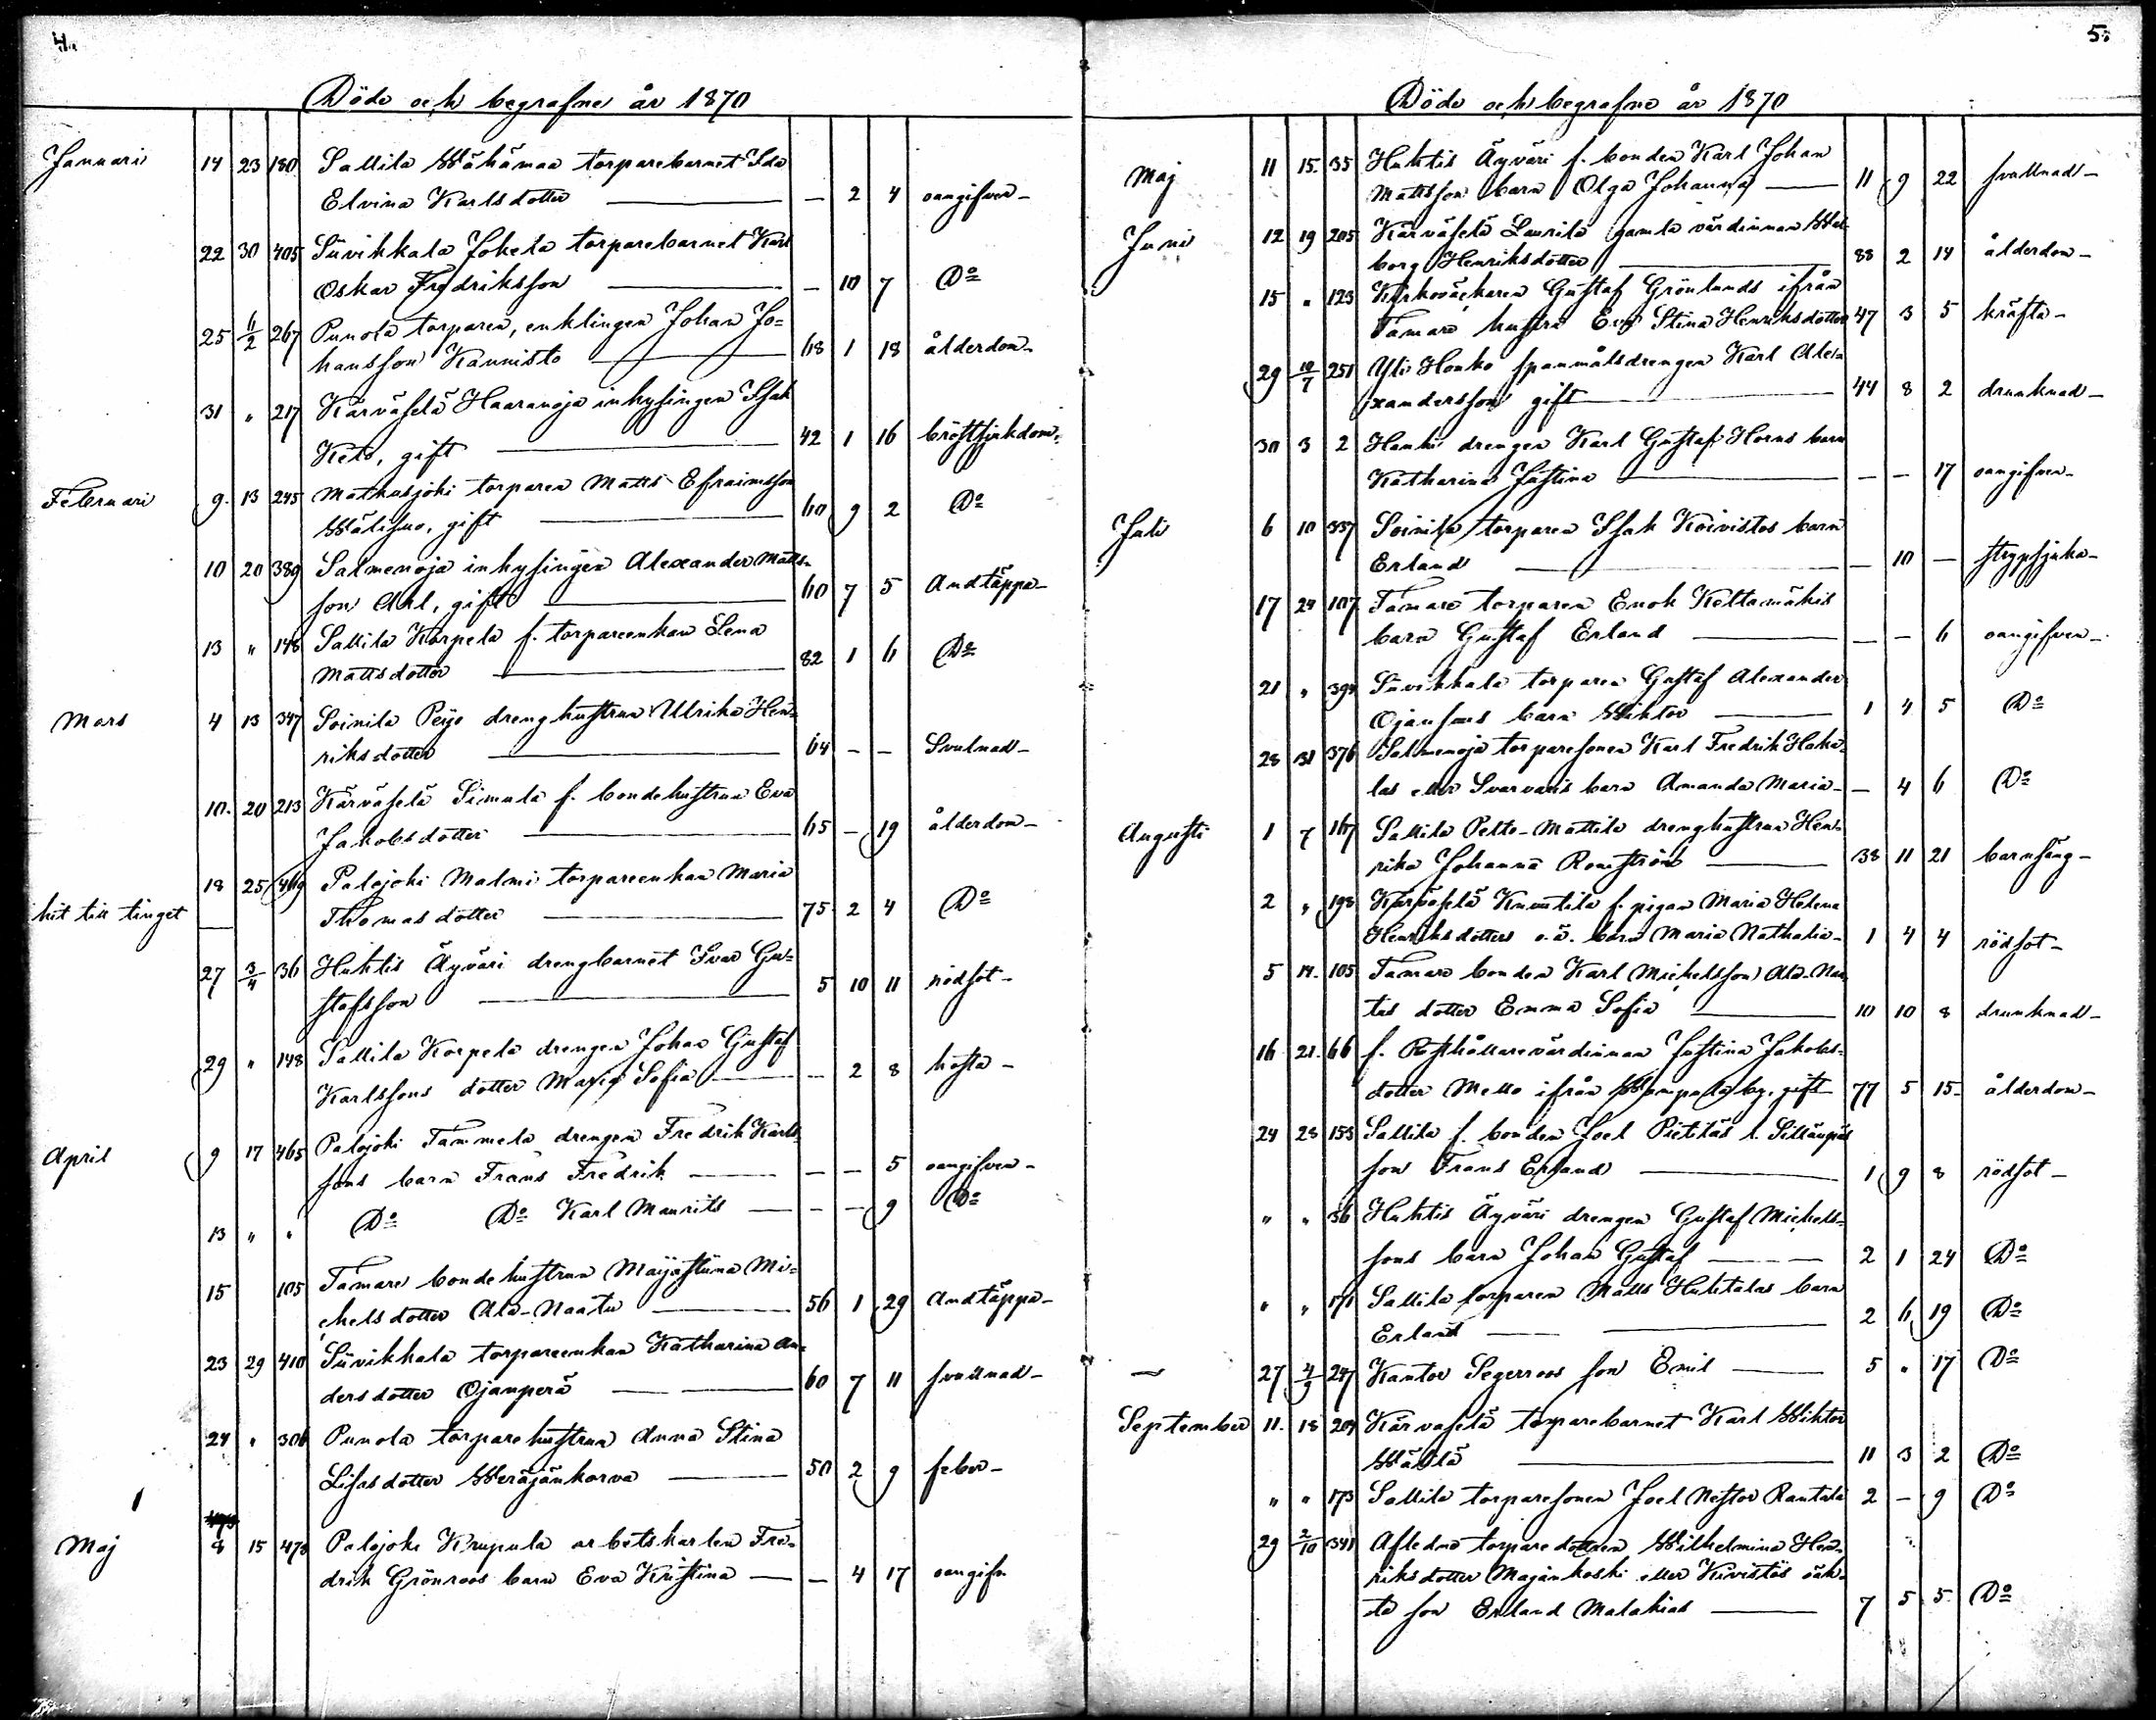 4.
Döde och begrafne år 1870
Januari 14 23 180 Sallila Wähämaa torparebarnet Ida
Elvina Karlsdotter — — 2 4 oangifven
22 30 405 Siivikkala Jokela torparebarnet Karl
Oskar Fredriksson — — 10 7 Do
25 6/2 267 Punola torparen, enklingen Johan Jo=
hansson Kannisto — 68 1 18 ålderdom
31 " 217 Kärväselä Haaranoja inhysingen Isak
Keto, gift — 42 1 16 bröstsjukdom
Februari 9. 13 245 Matkusjoki torparen Matts Efraimsson
Wälisuo, gift — 60 9 2 Do
10 20 389 Salmenoja inhysingen Alexander Matts=
son Ahl, gift — 60 7 5 Andtäppa
13 " 148 Sallila Korpela f. torpareenkan Lena
Mattsdotter — 82 1 6 Do
Mars 4 13 347 Soinila Peijo drenghustrun Ulrika Hen=
riksdotter — 64 — — Svulnad
10. 20 213 Kärväselä Simula f. bondehustrun Eva
Jakobsdotter — 65 — 19 ålderdom
18 25 469 Palojoki Malmi torpareenkan Maria
hit till tinget
Thomasdotter — 75 2 4 Do
27 3/4 36 Huhtis Äyväri drengbarnet Ivar Gu=
stafsson — 5 10 11 rödsot
29 " 148 Sallila Korpela drengen Johan Gustaf
Karlssons dotter Maria Sofia — — 2 8 hosta
April 9 17 465 Palojoki Tammela drengen Fredrik Karls=
sons barn Frans Fredrik — — — 5 oangifven
13 " " Do Do Karl Maurits — — — 9 Do
15 105 Tamare bondehustrun Majastiina Mi=
chelsdotter Ala-Naatu — 56 1 29 Andtäppa
23 29 410 Siivikkala torpareenkan Katharina An=
dersdotter Ojanperä — 60 7 11 svullnad
24 " 306 Punola torparehustrun Anna Stina
Lisasdotter Weräjänkorva — 50 2 9 feber
Maj 8 15 478 Palojoki Krupula arbetskarlen Fre=
drik Grönroos barn Eva Kristina — — 4 17 oangifv
5.
Döde och begrafne år 1870
Maj 11 15. 35 Huhtis Äyväri f. bonden Karl Johan
Mattsson barn Olga Johanna — 11 9 22 svullnad
Juni 12 19 205 Kärväselä Laurila gamla värdinnan Wal=
borg Henriksdotter — 88 2 14 ålderdom
15 " 123 Kyrkoväktaren Gustaf Grönlunds ifrån
Tamare hustru Eva Stina Henriksdotter 47 3 5 kräfta
29 10/7 251 Yli Honko spanmålsdrengen Karl Ale=
xandersson gift — 44 8 2 drunknad
30 3 2 Hanhi drengen Karl Gustaf Horns barn
Katharina Justina — — — 17 oangifven
Juli 6 10 337 Soinila torparen Isak Koivistos barn
Erland — — 10 — strypsjuka
17 24 107 Tamare torparen Enok Keltamäkis
barn Gustaf Erland — — — 6 oangifven
21 " 394 Siivikkala torparen Gustaf Alexander
Ojansuus barn Wiktor — 1 4 5 Do
28 31 376 Salmenoja torparesonen Karl Fredrik Haka=
las eller Svarvaris barn Amanda Maria — — 4 6 Do
Augusti 1 7 167 Sallila Pelto-Mattila drenghustrun Hen=
rika Johanna Romström — 38 11 21 barnsäng
2 " 198 Kärväselä Knuutila f. pigan Maria Helena
Henriksdotters o.ä. barn Maria Nathalia — 1 4 4 rödsot
5 14. 105 Tamare bonden Karl Michelsson Ala-Naa=
tus dotter Emma Sofia — 10 10 8 drunknad
16 21. 66 f. Rusthållarevärdinnan Justina Jakobs=
dotter Mello ifrån Wampula by, gift 77 5 15 ålderdom
24 28 153 Sallila f. bonden Joel Pietiläs l. Sillanpääs
son Frans Erland — 1 9 8 rödsot
" " 36 Huhtis Äyväri drengen Gustaf Michels=
sons barn Johan Gustaf — 2 1 24 Do
" " 171 Sallila torparen Matts Huhtalas barn
Erland — 2 6 19 Do
— 27 4/9 247 Kantor Segerroos son Emil — 5 " 17 Do
September 11. 18 204 Kärväselä torparebarnet Karl Wiktor
Wättlä — 11 3 2 Do
" " 173 Sallila torparesonen Joel Nestor Rantala 2 — 9 Do
29 2/10 341 Afledne torparedottren Wilhelmina Hen=
riksdotter Majankoski eller Kivistös oäk=
ta son Erland Malakias — 7 5 5 Do